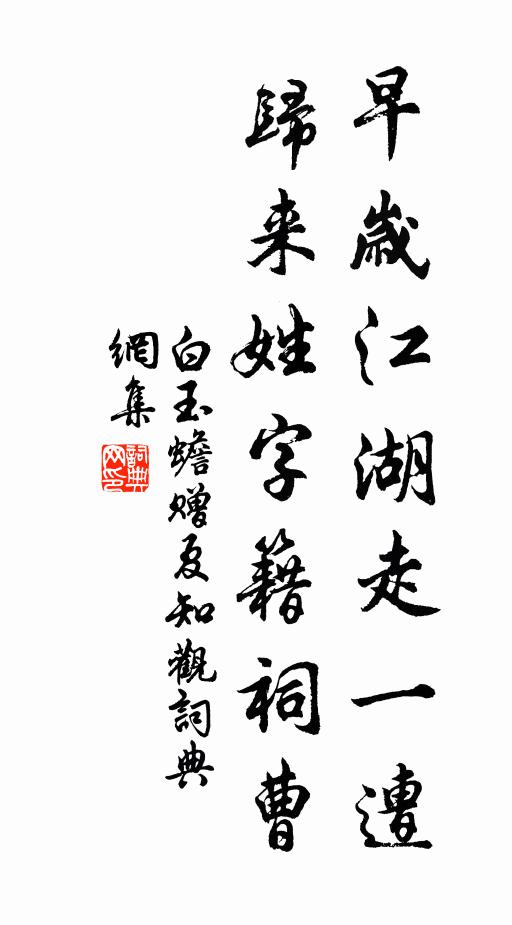 早歲江湖走一遭
歸来姓字籍祠曹
白玉蟾贈夏知觀詞典
網集
詞典
网印